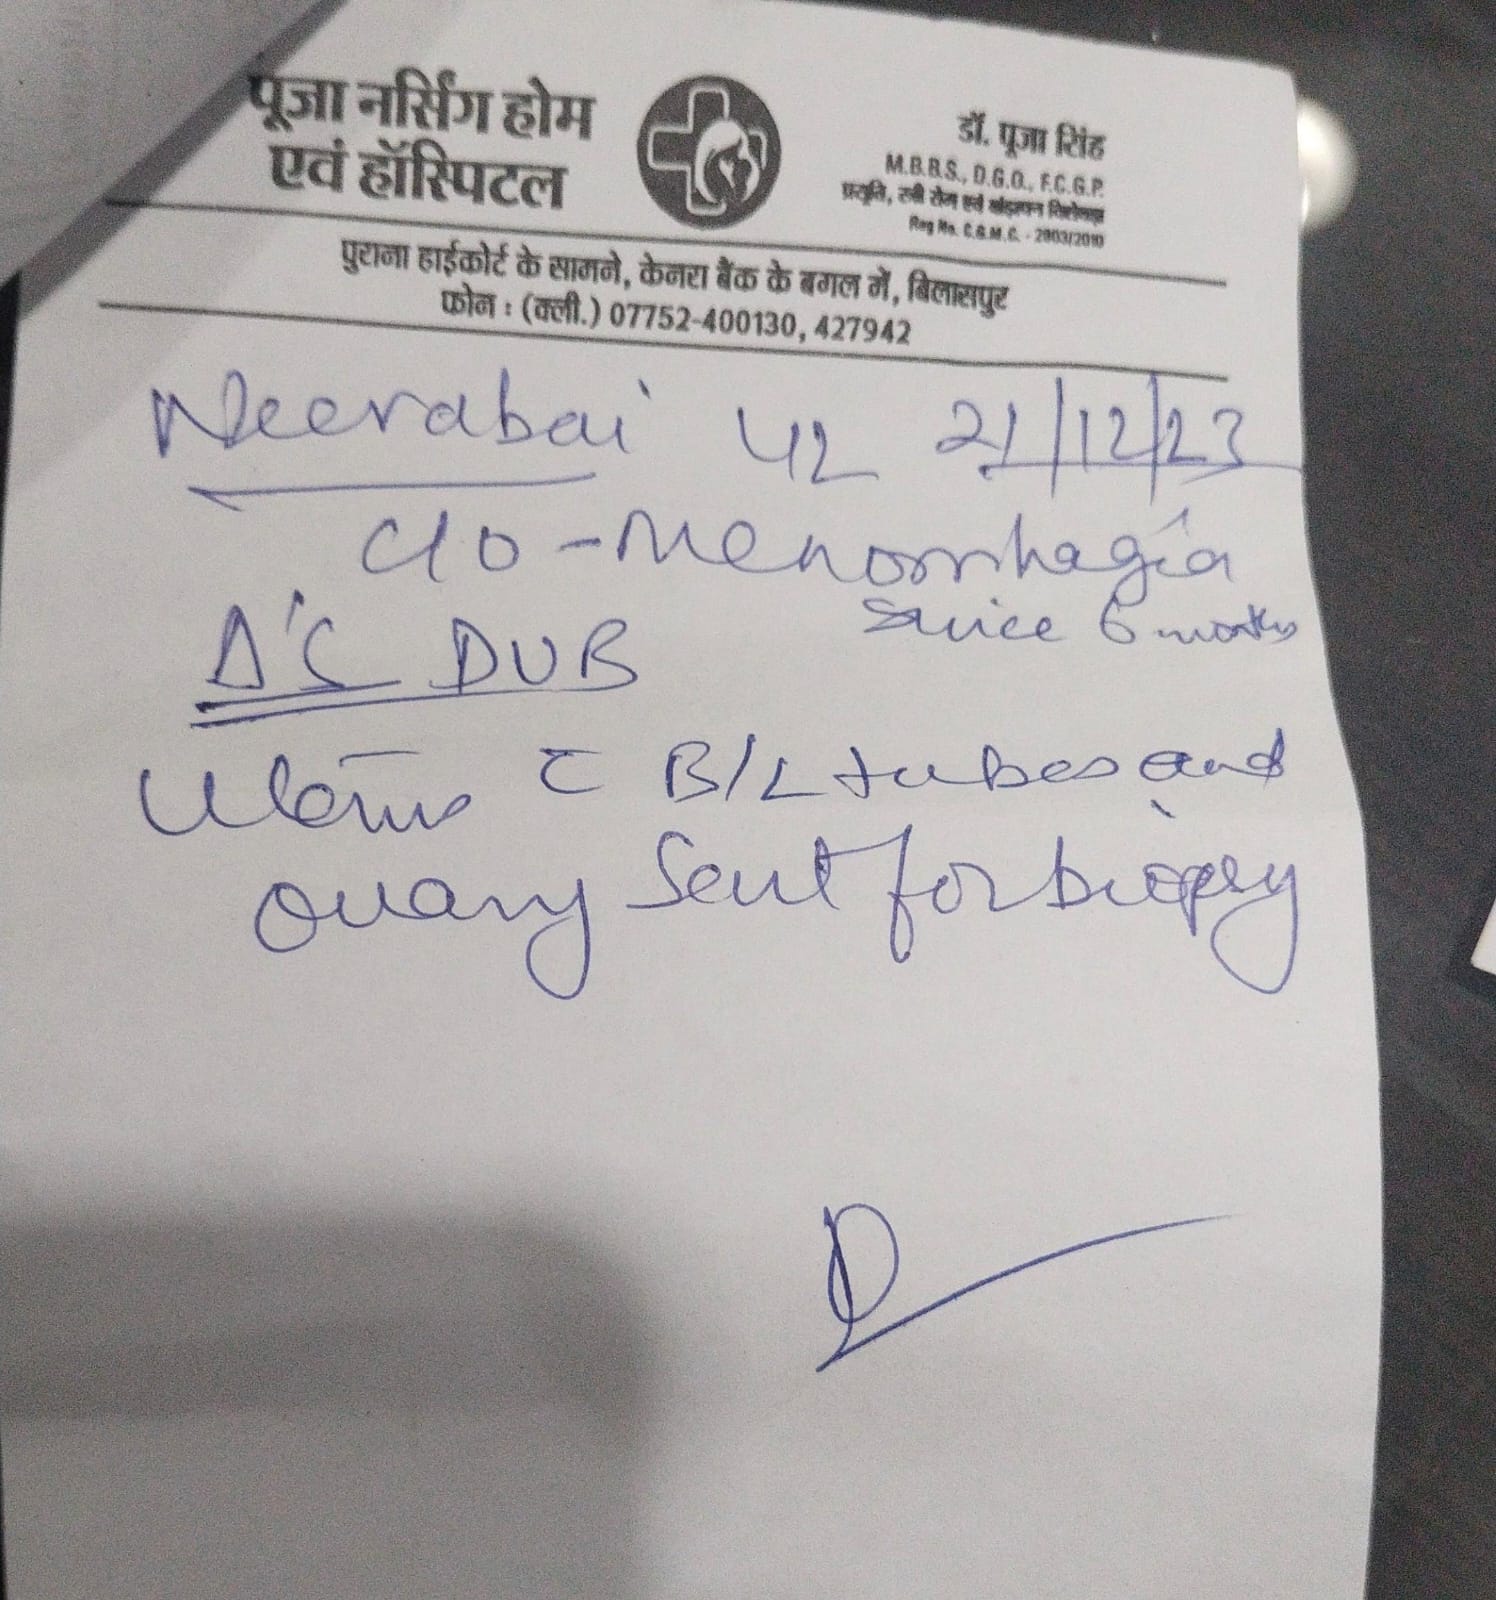 पूजा नर्सिंग होम
एवं हॉस्पिटल
डॉ. पूजा सिंह
M.B.B.S., D.G.O., F.C.G.P.
प्रसूति, स्त्री रोग एवं बांझपन विशेषज्ञ
Reg No. C.G.M.C. - 2903/2010
पुराना हाईकोर्ट के सामने, केनरा बैंक के बगल में, बिलासपुर
फोन : (क्ली.) 07752-400130, 427942
Neerabai 42 21/12/23
C/o - Menorrhagia
since 6 months
Δ'S DUB
Uterus c̄ B/L tubes and
ovary sent for biopsy